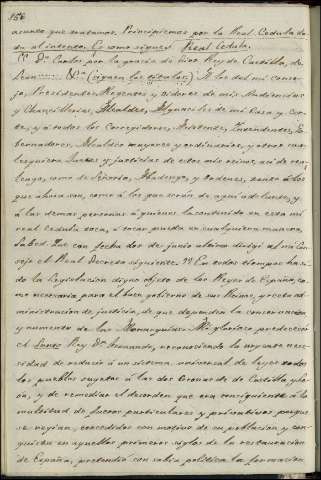 156
asunto que tratamos. Principiemos por la Real Cedula da-
da al intento. Es como sigue = Real Cedula.
Dn. Carlos por la gracia de Dios Rey de Castilla, de
Leon &a. (siguen los títulos.) A los del mi conse-
jo, Presidentes, Regentes y Oidores de mis Audiencias
y Chancillerias, Alcaldes, Alguaciles de mi Casa y Cor-
te, y á todos los Corregidores, Asistentes, Intendentes, Go-
bernadores, Alcaldes mayores y ordinarios, y otros cua-
lesquiera Jueces y justicias de estos mis reinos, así de rea-
lengo, como de Señorío, Abadengo, y Ordenes, tanto á los
que ahora son, como á los que serán de aquí adelante, y
á las demas personas á quienes lo contenido en esta mi
real cedula toca, ó tocar pueda en cualquiera manera,
Sabed: Que con fecha dos de junio ultimo dirigí al mi Con-
sejo el Real Decreto siguiente. "En todos tiempos ha si-
do la legislacion digno objeto de los Reyes de España, co-
mo necesaria para el buen gobierno de sus Reinos, y recta ad-
ministracion de justicia, de que dependen la conservacion
y aumento de las Monarquías. Mi glorioso predecesor
el Santo Rey Dn. Fernando, reconociendo la urgente nece-
sidad de reducir á un sistema universal de leyes todos
los pueblos sugetos á las dos Coronas de Castilla y Le-
on, y de remediar el desorden que era consiguiente á la
multitud de fueros particulares y privativos porque
se regían, concedidos con motivo de su poblacion y con-
quista en aquellos primeros siglos de la restauracion
de España, pretendió con sabia política la formacion